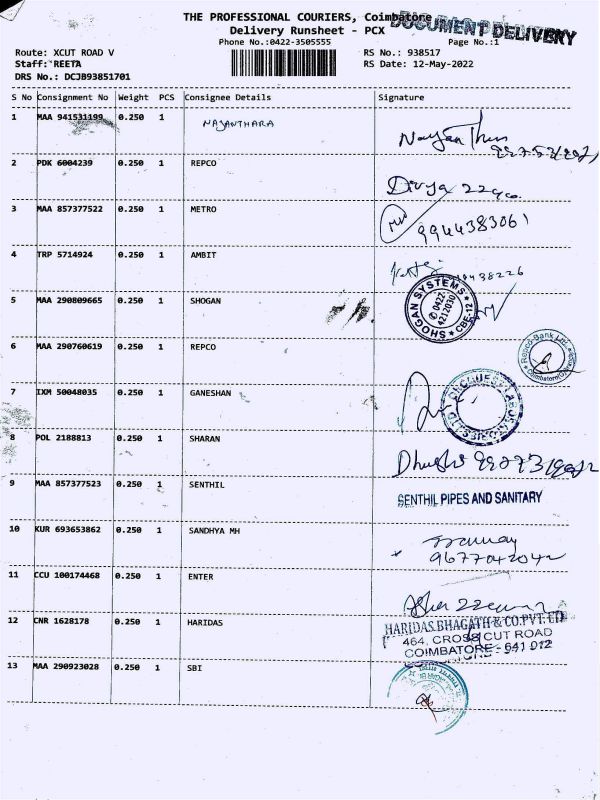 THE PROFESSIONAL COURIERS, Coimbatore
DOCUMENT DELIVERY
Delivery Runsheet - PCX
Phone No.:0422-3505555 Page No.:1
Route: XCUT ROAD V RS No.: 938517
Staff: REETA RS Date: 12-May-2022
DRS No.: DCJB93851701
S No Consignment No Weight PCS Consignee Details Signature
1 MAA 941531199 0.250 1 NAYANTHARA
2 PDK 6004239 0.250 1 REPCO
Divya
3 MAA 857377522 0.250 1 METRO
9944383061
4 TRP 5714924 0.250 1 AMBIT
5 MAA 290809665 0.250 1 SHOGAN
SHOGAN SYSTEMS CBE-12
0422-
4217030
6 MAA 290760619 0.250 1 REPCO
Repco Bank Ltd.
7 IXM 50048035 0.250 1 GANESHAN
8 POL 2188813 0.250 1 SHARAN
9 MAA 857377523 0.250 1 SENTHIL
SENTHIL PIPES AND SANITARY
10 KUR 693653862 0.250 1 SANDHYA MH
9677042042
11 CCU 100174468 0.250 1 ENTER
12 CNR 1628178 0.250 1 HARIDAS
HARIDAS BHAGATH & CO.PVT. LTD
464, CROSS CUT ROAD
COIMBATORE - 641 012
13 MAA 290923028 0.250 1 SBI